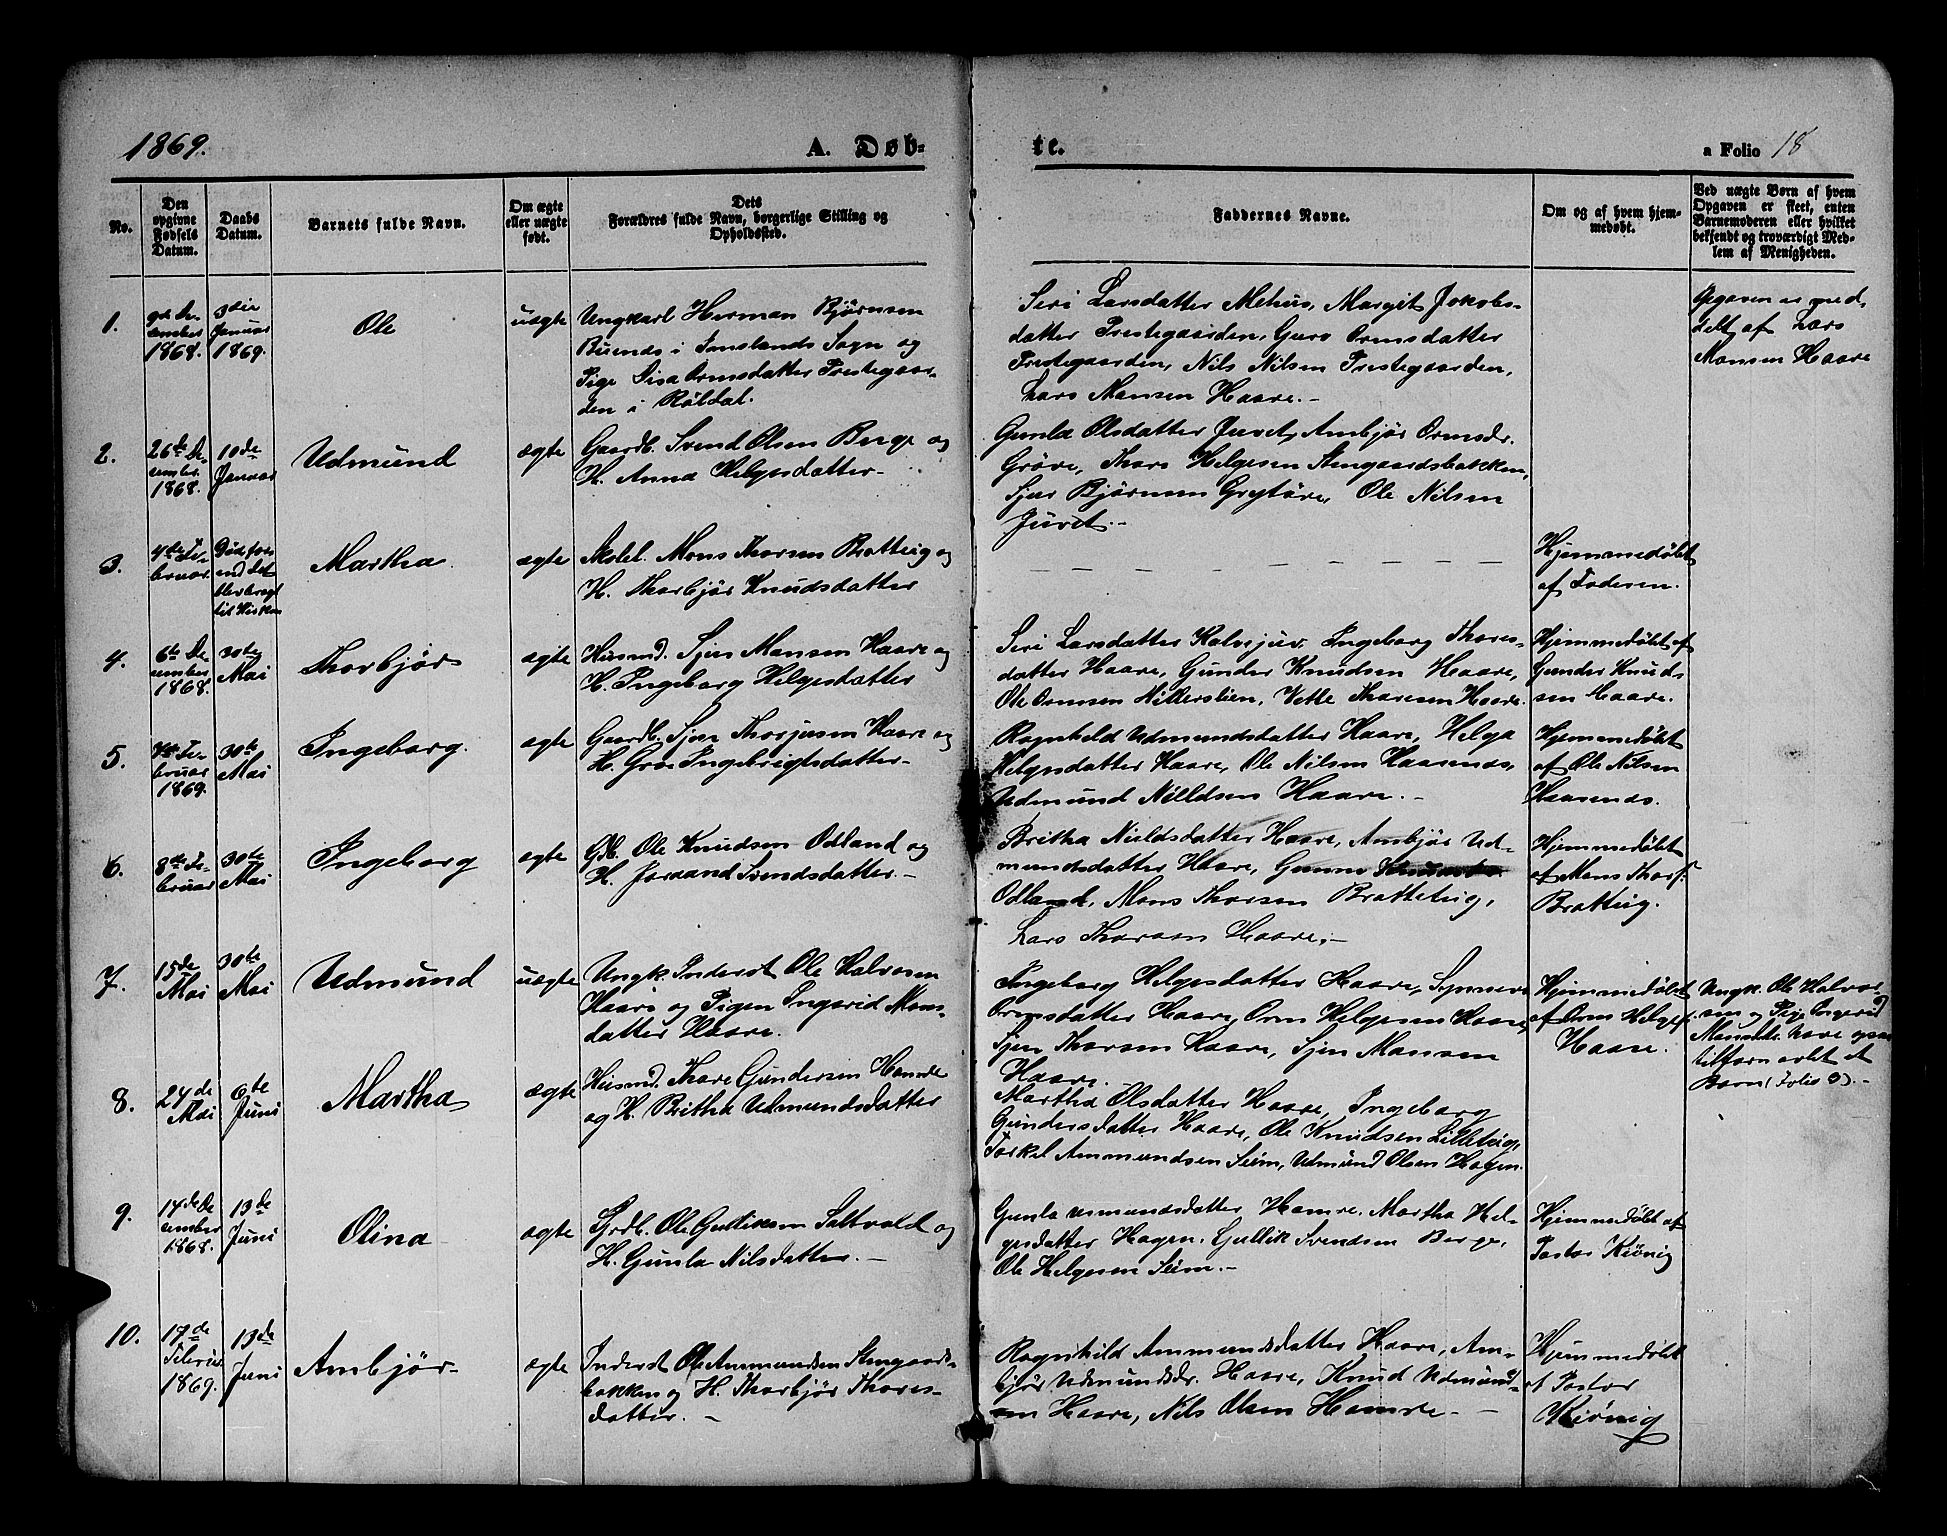 1869.
A. Døb-
te.
a Folio 18
No.
Den
opgivne
Fødsels
Datum.
Daabs
Datum.
Barnets fulde Navn.
Om ægte
eller uægte
født.
Dets
Forældres fulde Navn, borgerlige Stilling og
Opholdssted.
Faddernes Navne.
Om og af hvem hjem-
medøbt.
Ved uægte Børn af hvem
Opgaven er skeet, enten
Barnemoderen eller hvilket
bekjendt og troværdigt Med-
lem af Menigheden.
1.
9de De-
cember
1868.
3die
Januar
1869.
Ole
uægte
Ungkarl Herman Bjørnsen
Buends i Imslands Sogn og
Pige Disa Ormsdatter Prestegaar-
den i Røldal.
Seri Larsdatter Mehus, Margit Jakobs-
datter Prestegaarden, Guro Ormsdatter
Prestegaarden, Nils Nilsen Prestegaarden,
Lars Monsen Haare.-
Opgaven er med
delt af Lars
Monsen Haare
2.
26de De-
cember
1868.
10de
Januar
Udmund
ægte
Gaardb. Svend Olsen Berge og
H. Anna Helgesdatter-
Gunla Olsdatter Juvet, Ambjør Ormsdr.
Grøve, Thore Helgesen Stengaardsbakken,
Sjur Bjørnsen Grytøre, Ole Nilsen
Juvet.-
3.
4de Fe-
bruar.
Død for
end det
blev bragt
til Kirken
Martha
ægte
Skolel. Mons Thorsen Bratteig og
H. Thorbjør Knudsdatter
Hjemmedøbt
af Faderen.
4.
6te De-
cember
1868.
30te
Mai
Thorbjør
ægte
Husmd. Sjur Monsen Haare og
H. Ingeborg Helgesdatter
Seri Larsdatter Kalvejuv, Ingeborg Thores-
datter Haare, Gunder Knudsen Haare,
Ole Ormsen Hillerslien, Vetle Thoresen Haare.
Hjemmedøbt af
Gunder Knud-
sen Haare.
5.
Fe-
bruar
1869.
30te
Mai
Ingeborg.
ægte
Gaardb. Sjur Haare og
H. Gro Ingebrigtsdatter.-
Ragnhild Udmundsdatter Haare, Helga
Helgesdatter Haare, Ole Nilsen Haarenæs,
Udmund Nilldsen Haare.-
Hjemmedøbt
af Ole Nilsen
Haarenæs.
6.
8de Fe-
bruar
30te
Mai
Ingeborg
ægte
Gdb. Ole Knudsen Odland og
H. Joraand Svendsdatter.-
Britha Nieldsdatter Haare, Ambjør Ud-
mundsdatter Haare, Gunne
Odland, Mons Thorsen Bratteteig,
Lars Thorsen Haare.-
Hjemmedøbt
af Mons Thors:
Bratteig.
7.
15de
Mai
30te
Mai
Udmund
uægte
Ungk. Inderst Ole Halvorsen
Haare og Pigen Ingerid Mons-
datter Haare.
Ingeborg Helgesdatter Haare, Synneve
Ormsdatter Haare, Orm Helgesen Haare,
Sjur Thorsen Haare, Sjur Monsen
Haare.
Hjemmedøbt
af Orm Helges:
Haare.
Ungk. Ole Halvor-
sen og Pige Ingerid
Monsdr. have ogsaa
tilforn avlet et
Barn (Folio 8).-
8.
24de
Mai
6te
Juni
Martha
ægte
Husmd. Thore Gundersen Hamre
og H. Britha Udmundsdatter
Martha Olsdatter Haare, Ingeborg
Gundersdatter Haare, Ole Knudsen Lilleteig,
Torkel Ammundsen Seim, Udmund Olsen Hagen.
9.
14de De
cember
1868.
13de
Juni
Olina
ægte
Grdb. Ole Gulliksen Saltvold og
H. Gunla Nilsdatter.-
Gunla Usmundsdatter Hamre, Martha Hel-
gesdatter Hagen, Gullik Svendsen Berge,
Ole Helgesen Seim.-
Hjemmedøbt af
Pastor Kiønig
10.
17de
1869.
13de
Juni
Ambjør-
ægte
Inderst Ole Ammundsen Stengaards-
bakken og H. Thorbjør Thores-
datter.-
Ragnhild Ammundsdatter Haare, Am-
bjør Udmundsdr. Haare, Knud Udmund-
sen Haare, Nils Olsen Hamre.-
Hjemmedøbt
af Pastor
Kiønig